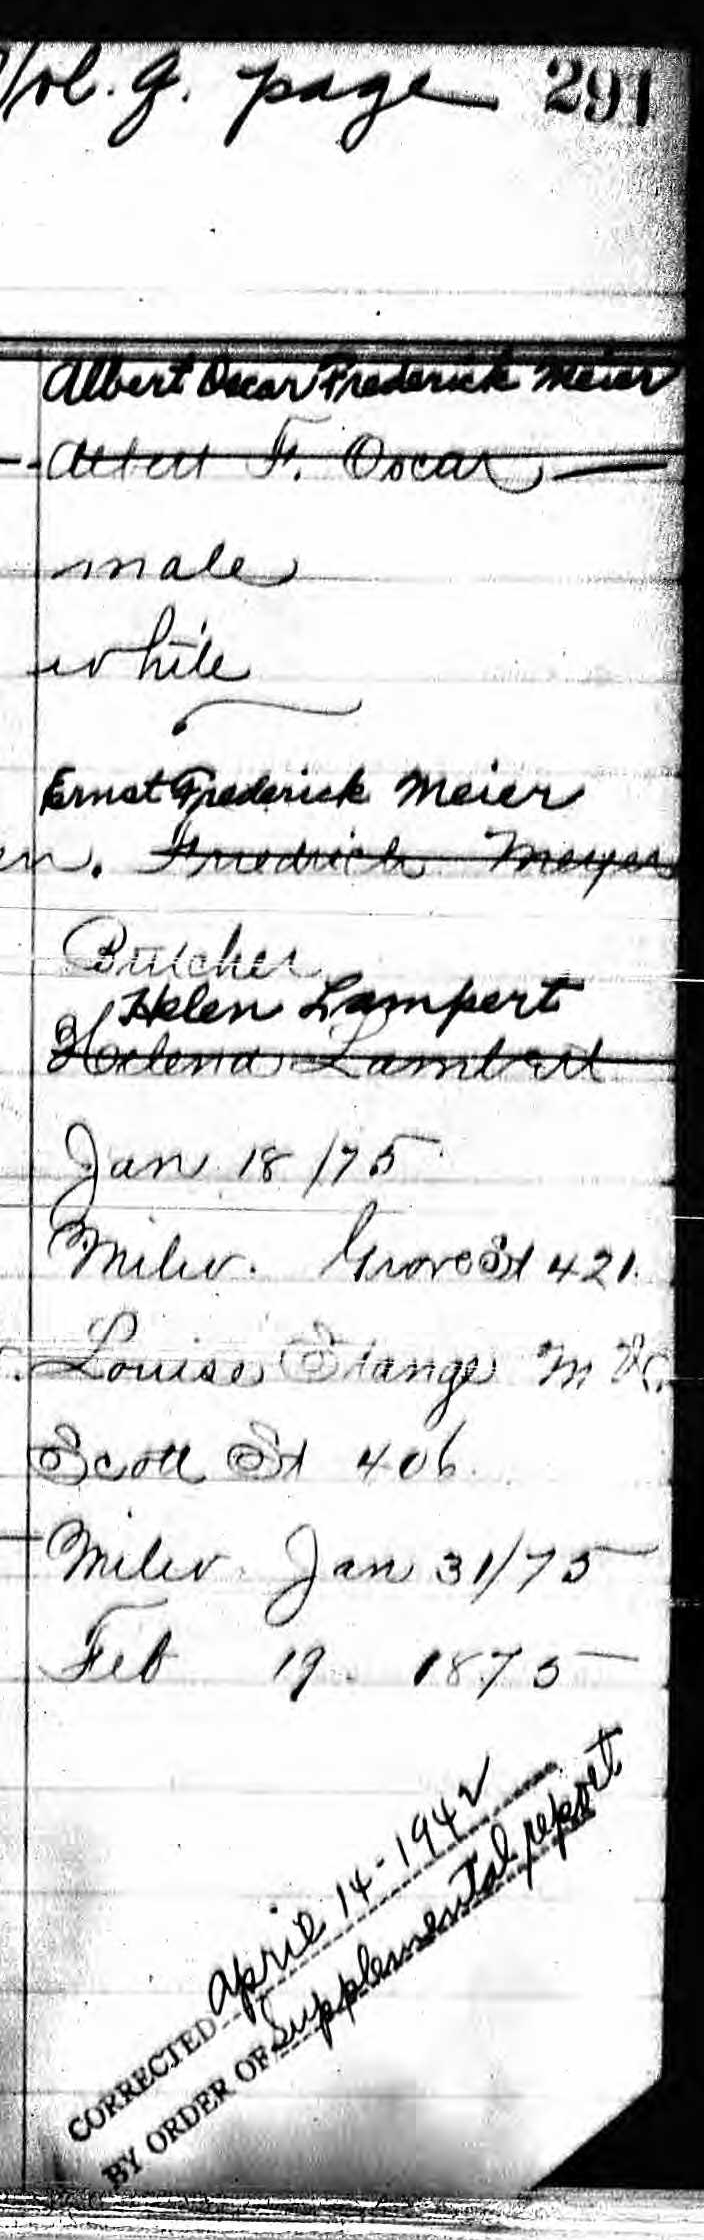 Vol. G. page 291
Albert Oscar Frederick Meier
Albert F. Oscar
male
white
Ernst Frederick Meier
en. Friedrich Meyer
Butcher
Helen Lampert
Helena Lambert
Jan 18/75
Milw. Grove St 421.
Louise Stange
Scott St 406.
Milw. Jan 31/75
Feb 19 1875
CORRECTED April 14-1942
BY ORDER OF Supplemental report